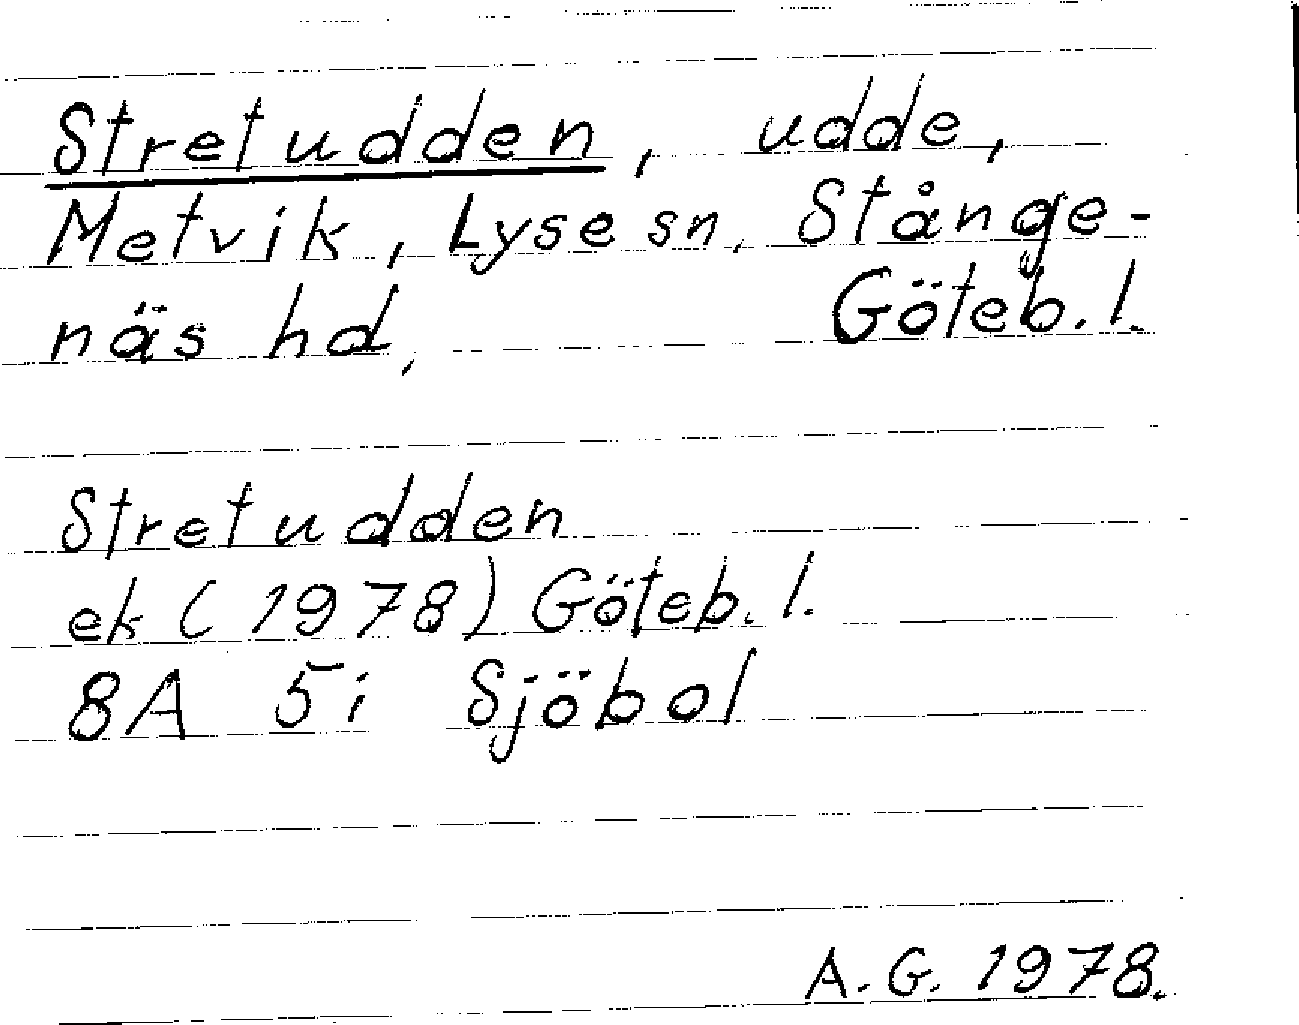 Stretudden, udde,
Metvik, Lyse sn, Stånge-
näs hd, Göteb. l.
Stretudden
ek (1978) Göteb. l.
8A 5i Sjöbol
A. G. 1978.